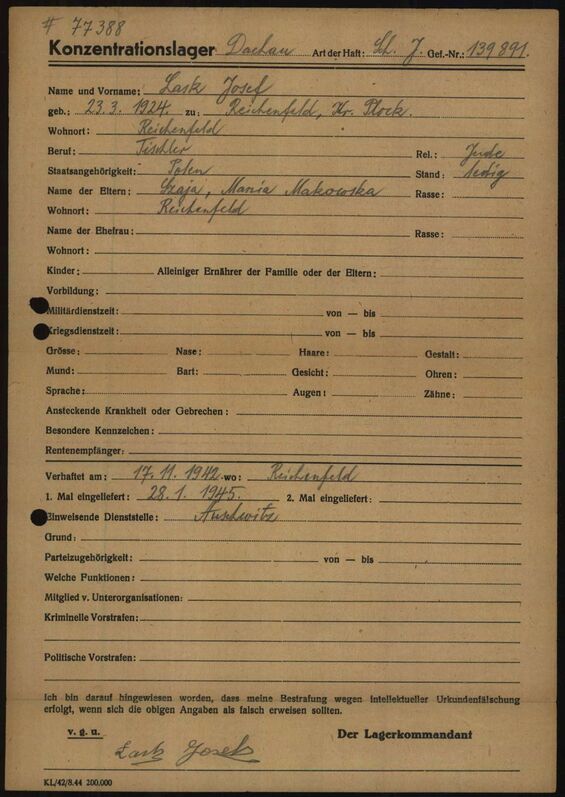 # 77388
Konzentrationslager Dachau Art der Haft: Sch. J. Gef.-Nr.: 139891.
Name und Vorname: Lask Josef
geb.: 23.3.1924. zu: Reichenfeld, Kr. Plock.
Wohnort: Reichenfeld
Beruf: Tischler Rel.: Jude
Staatsangehörigkeit: Polen Stand: ledig
Name der Eltern: Szaja, Mania Makowska Rasse:
Wohnort: Reichenfeld
Name der Ehefrau: Rasse:
Wohnort:
Kinder: Alleiniger Ernährer der Familie oder der Eltern:
Vorbildung:
Militärdienstzeit: von — bis
Kriegsdienstzeit: von — bis
Grösse: Nase: Haare: Gestalt:
Mund: Bart: Gesicht: Ohren:
Sprache: Augen: Zähne:
Ansteckende Krankheit oder Gebrechen:
Besondere Kennzeichen:
Rentenempfänger:
Verhaftet am: 17.11.1942 wo: Reichenfeld
1. Mal eingeliefert: 28.1.1945. 2. Mal eingeliefert:
Einweisende Dienststelle: Auschwitz
Grund:
Parteizugehörigkeit: von — bis
Welche Funktionen:
Mitglied v. Unterorganisationen:
Kriminelle Vorstrafen:
Politische Vorstrafen:
Ich bin darauf hingewiesen worden, dass meine Bestrafung wegen intellektueller Urkundenfälschung
erfolgt, wenn sich die obigen Angaben als falsch erweisen sollten.
v. g. u. Der Lagerkommandant
Lask Josek
KL/42/8.44 200.000